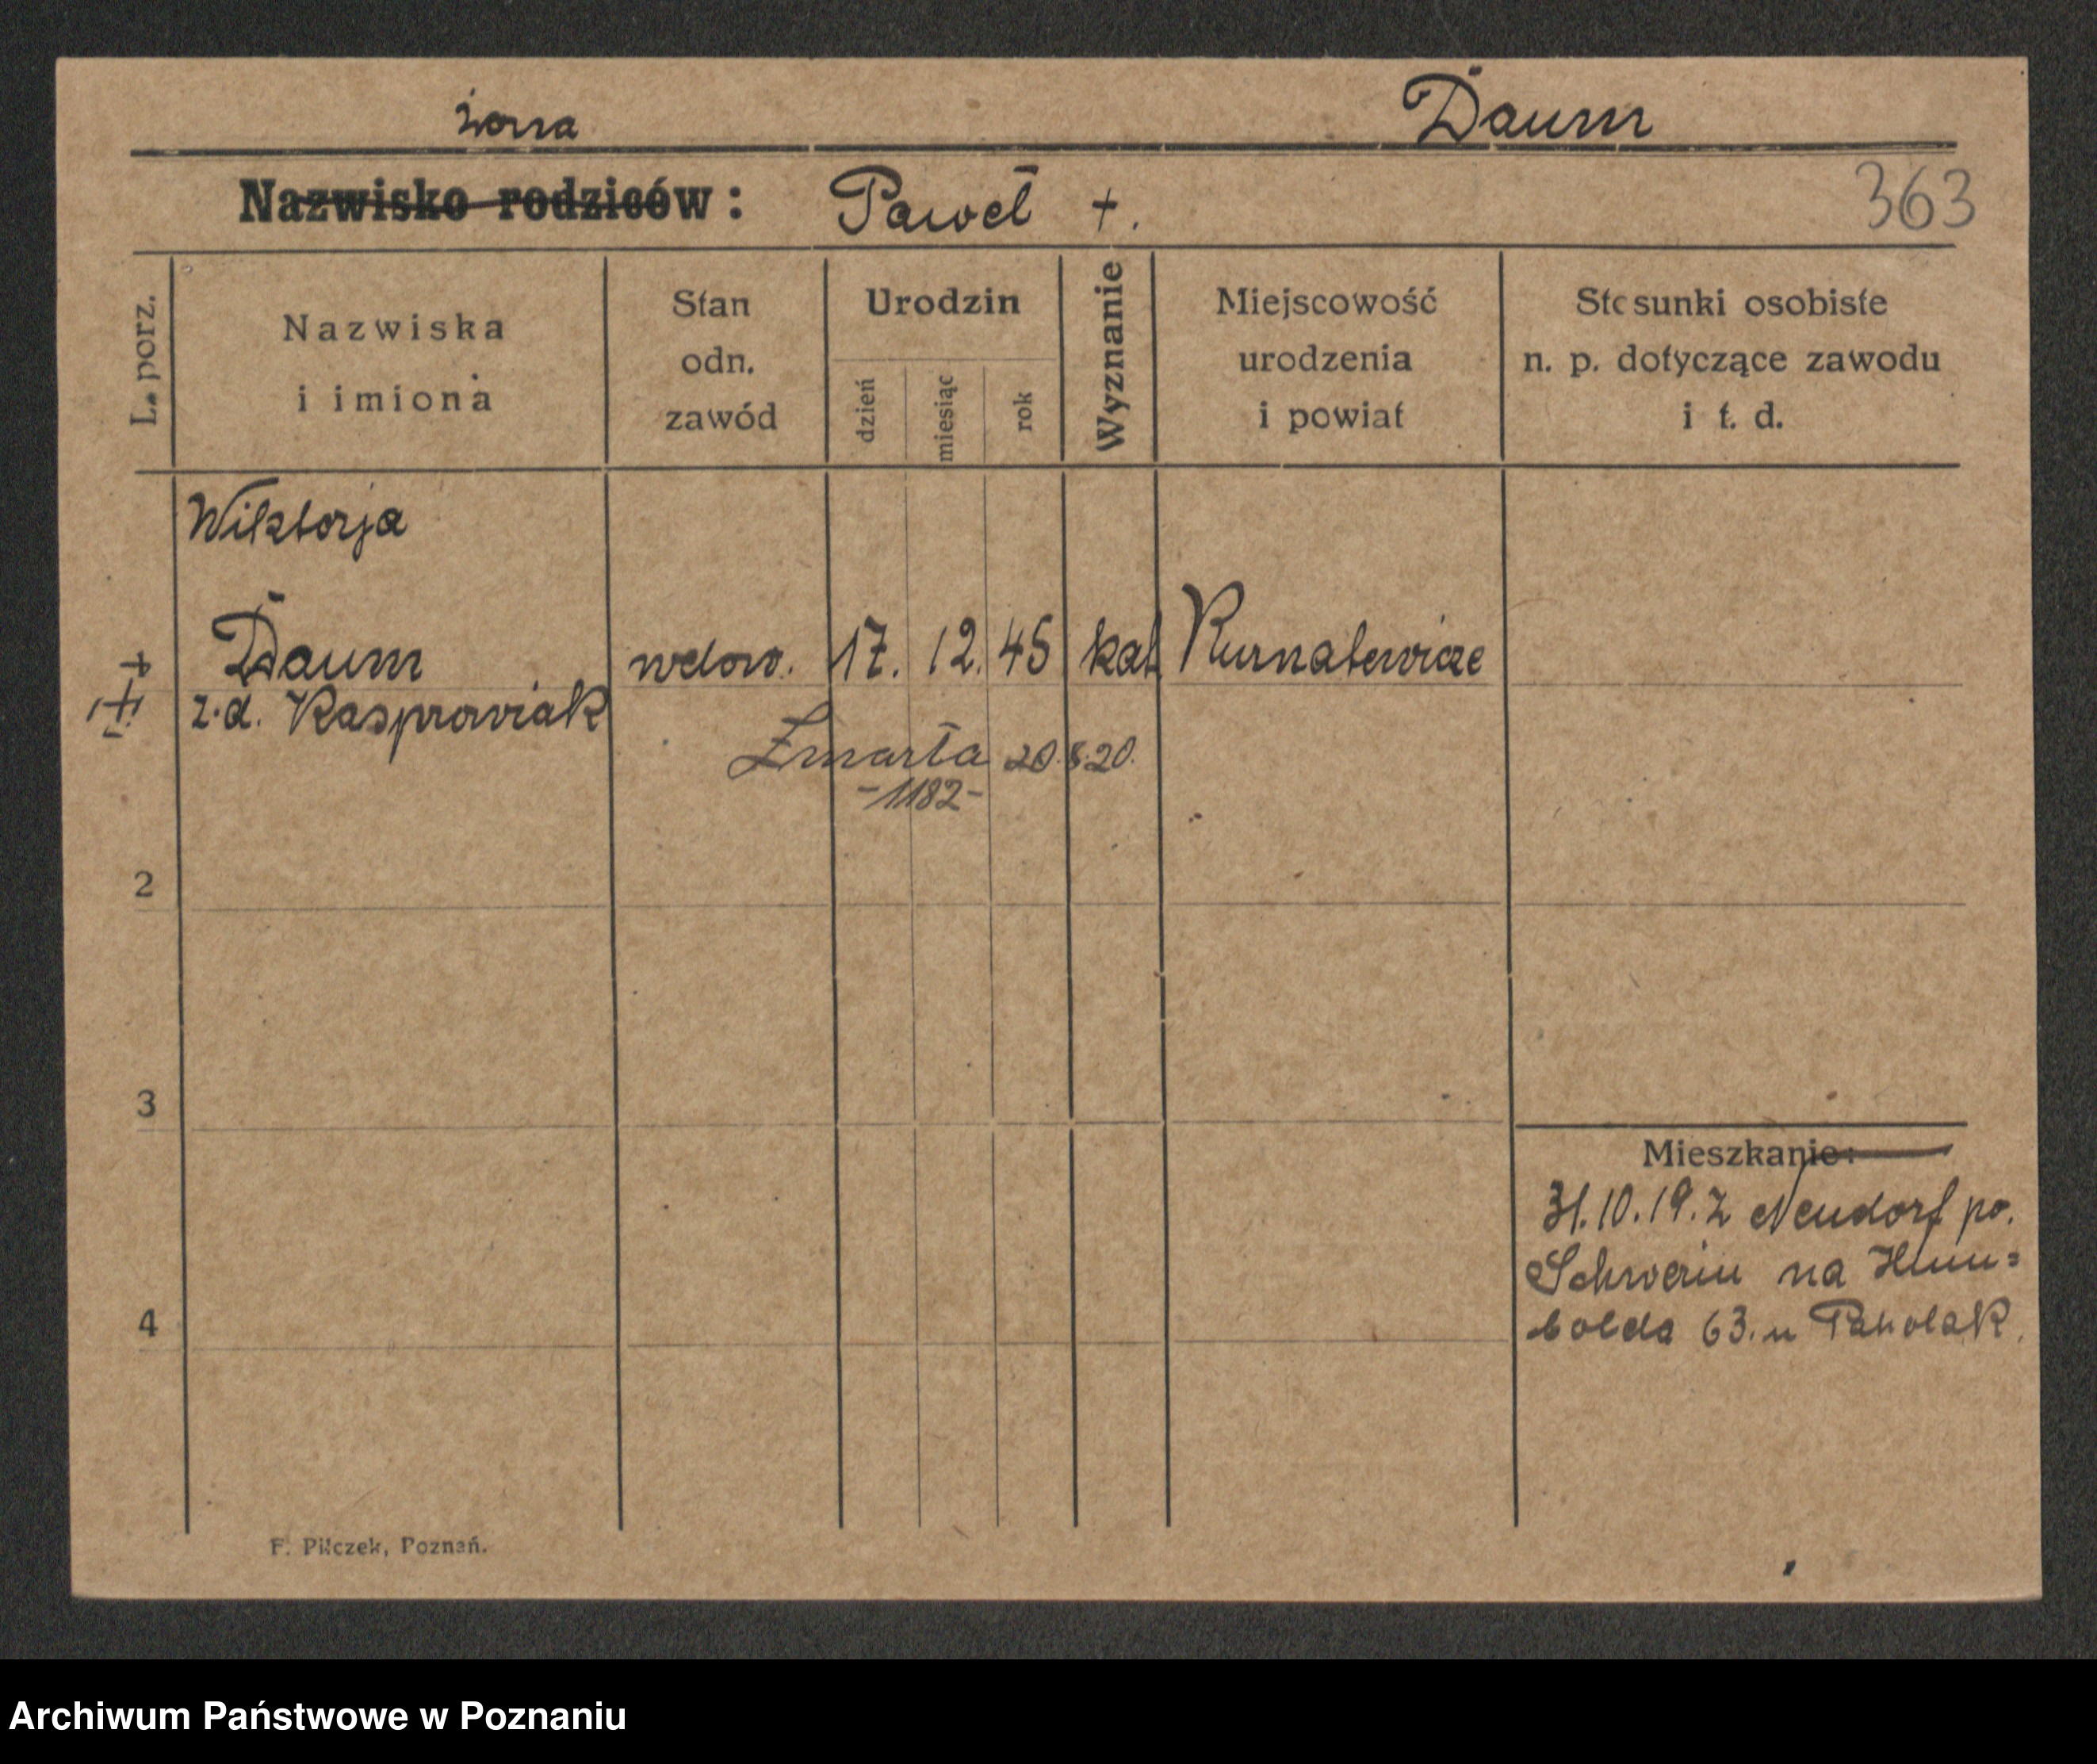 żona Daum
Nazwisko rodziców: Paweł +. 363
L. porz.
Nazwiska
i imiona
Stan
odn.
zawód
Urodzin
dzień
miesiąc
rok
Wyznanie
Miejscowość
urodzenia
i powiat
Stosunki osobiste
n. p. dotyczące zawodu
i t. d.
Wiktorja
Daum wdow. 17. 12. 45 kat Kurnatowice
z.d. Kasprowiak
Zmarła 20.8.20.
-1182-
2
3
4
Mieszkanie:
31.10.19. z Neudorf po.
Schwerin na Hum=
bolda 63. u Pawolak.
F. Pilczek, Poznań.
Archiwum Państwowe w Poznaniu